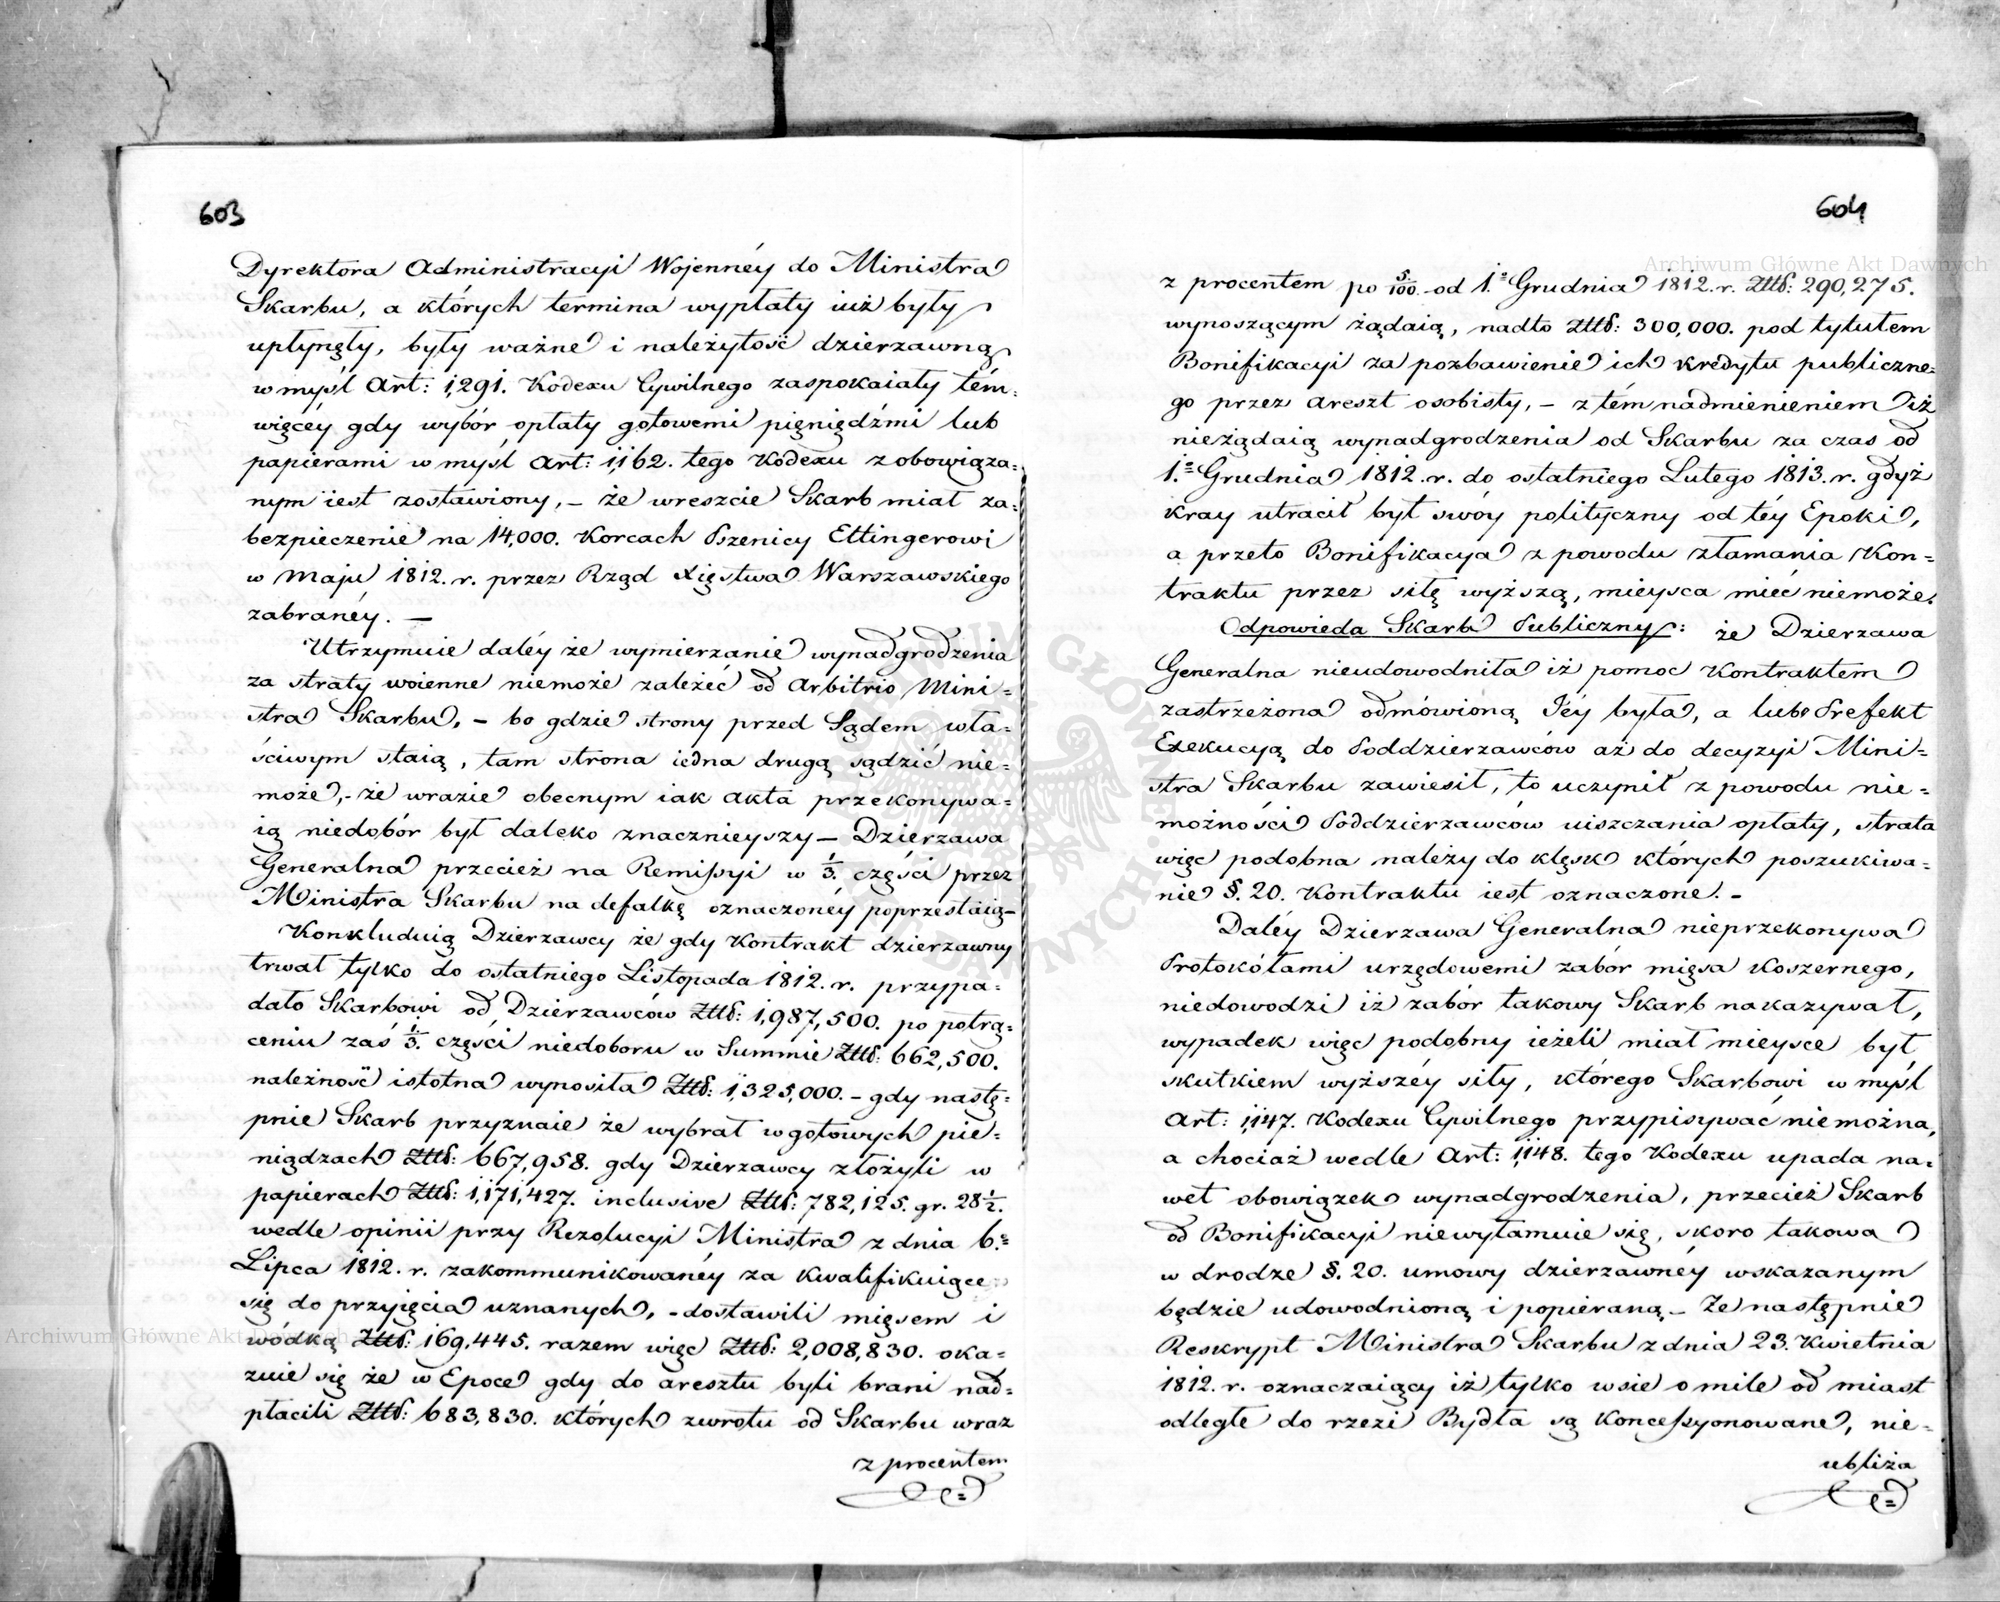 603
Dyrektora Administracyi Wojennéy do Ministra
Skarbu, a których termina wypłaty iuż były
upłynęły, były ważne i należytość dzierzawną
w myśl Art: 1,291. Kodexu Cywilnego zaspokaiały tém-
więcéy gdy wybór opłaty gotowemi pięniędźmi lub
papierami w myśl Art: 1,162. tego Kodexu zobowiąza=
nym iest zostawiony, – że wreszcie Skarb miał za=
bezpieczenie na 14,000. Korcach Pszenicy Ettingerowi
w Maju 1812. r. przez Rząd Xięstwa Warszawskiego
zabranéy. —
Utrzymuie daléy że wymierzanie wynadgrodzenia
za straty woienne niemoże zależéć od Arbitrio Mini=
stra Skarbu, – bo gdzie strony przed Sądem wła=
ściwym staią, tam strona iedna drugą sądzić nie=
może, – że wrazie obecnym iak Akta przekonywa=
ią niedobór był daleko znacznieyszy – Dzierzawa
Generalna przecież na Remissyi w 1/3. części przez
Ministra Skarbu na defalkę oznaczonéy poprzestaią –
Konkluduią Dzierzawcy że gdy Kontrakt dzierzawny
trwał tylko do ostatniego Listopada 1812. r. przypa=
dało Skarbowi od Dzierzawców Złtd: 1,987,500. po potrą=
ceniu zaś 1/3. części niedoboru w Summie Złtd: 662,500.
należność istotna wynosiła Złtd: 1,325,000. – gdy nastę=
pnie Skarb przyznaie że wybrał w gotowych pie=
niądzach Złtd: 667,958. gdy Dzierzawcy złożyli w
papierach Złtd: 1,171,427. inclusive Złtd: 782,125. gr. 28 1/2.
wedle opinii przy Rezolucyi Ministra z dnia 6.=
Lipca 1812. r. zakommunikowanéy za Kwalifikuiące
się do przyięcia uznanych, – dostawili mięsem i
wódką Złtd: 169,445. razem więc Złtd: 2,008,830. oka=
zuie się że w Epoce gdy do aresztu byli brani nad=
płacili Złtd: 683,830. których zwrotu od Skarbu wraz
z procentem
604
z procentem po 5/100. od 1.= Grudnia 1812. r. Złtd: 290,275.
wynoszącym żądaią, nadto Złtd: 300,000. pod tytułem
Bonifikacyi za pozbawienie ich kredytu publiczne=
go przez Areszt osobisty, – z tém nadmienieniem iż
nieżądaią wynadgrodzenia od Skarbu za czas od
1.= Grudnia 1812. r. do ostatniego Lutego 1813. r. gdyż
kray utracił był swóy polityczny od téy Epoki,
a przeto Bonifikacya z powodu złamania Kon=
traktu przez siłę wyższą, mieysca miéć niemoże.
Odpowieda Skarb Publiczny: że Dzierzawa
Generalna nieudowodniła iż pomoc Kontraktem
zastrzeżona odmówioną Jéy była, a lubo Prefekt
Exekucyą do Poddzierzawców aż do decyzyi Mini=
stra Skarbu zawiesił, to uczynił z powodu nie=
możności Poddzierzawców uiszczania opłaty, strata
więc podobna należy do klęsk których poszukiwa=
nie §. 20. Kontraktu iest oznaczone. –
Daléy Dzierzawa Generalna nieprzekonywa
Protokółami urzędowemi zabór mięsa koszernego,
niedowodzi iż zabór takowy Skarb nakazywał,
wypadek więc podobny ieżeli miał mieysce był
skutkiem wyższéy siły, którego Skarbowi w myśl
Art: 1,147. Kodexu Cywilnego przypisywać niemożna,
a chociaż wedle Art: 1,148. tego Kodexu upada na=
wet obowiązek wynadgrodzenia, przecież Skarb
od Bonifikacyi niewyłamuie się, skoro takowa
w drodze §. 20. umowy dzierzawnéy wskazanym
będzie udowodnioną i popieraną – Że następnie
Reskrypt Ministra Skarbu z dnia 23. Kwietnia
1812. r. oznaczaiący iż tylko wsie o mile od miast
odległe do rzezi Bydła są Koncessyonowane, nie=
ubliża
Archiwum Główne Akt Dawnych
Archiwum Główne Akt Dawnych